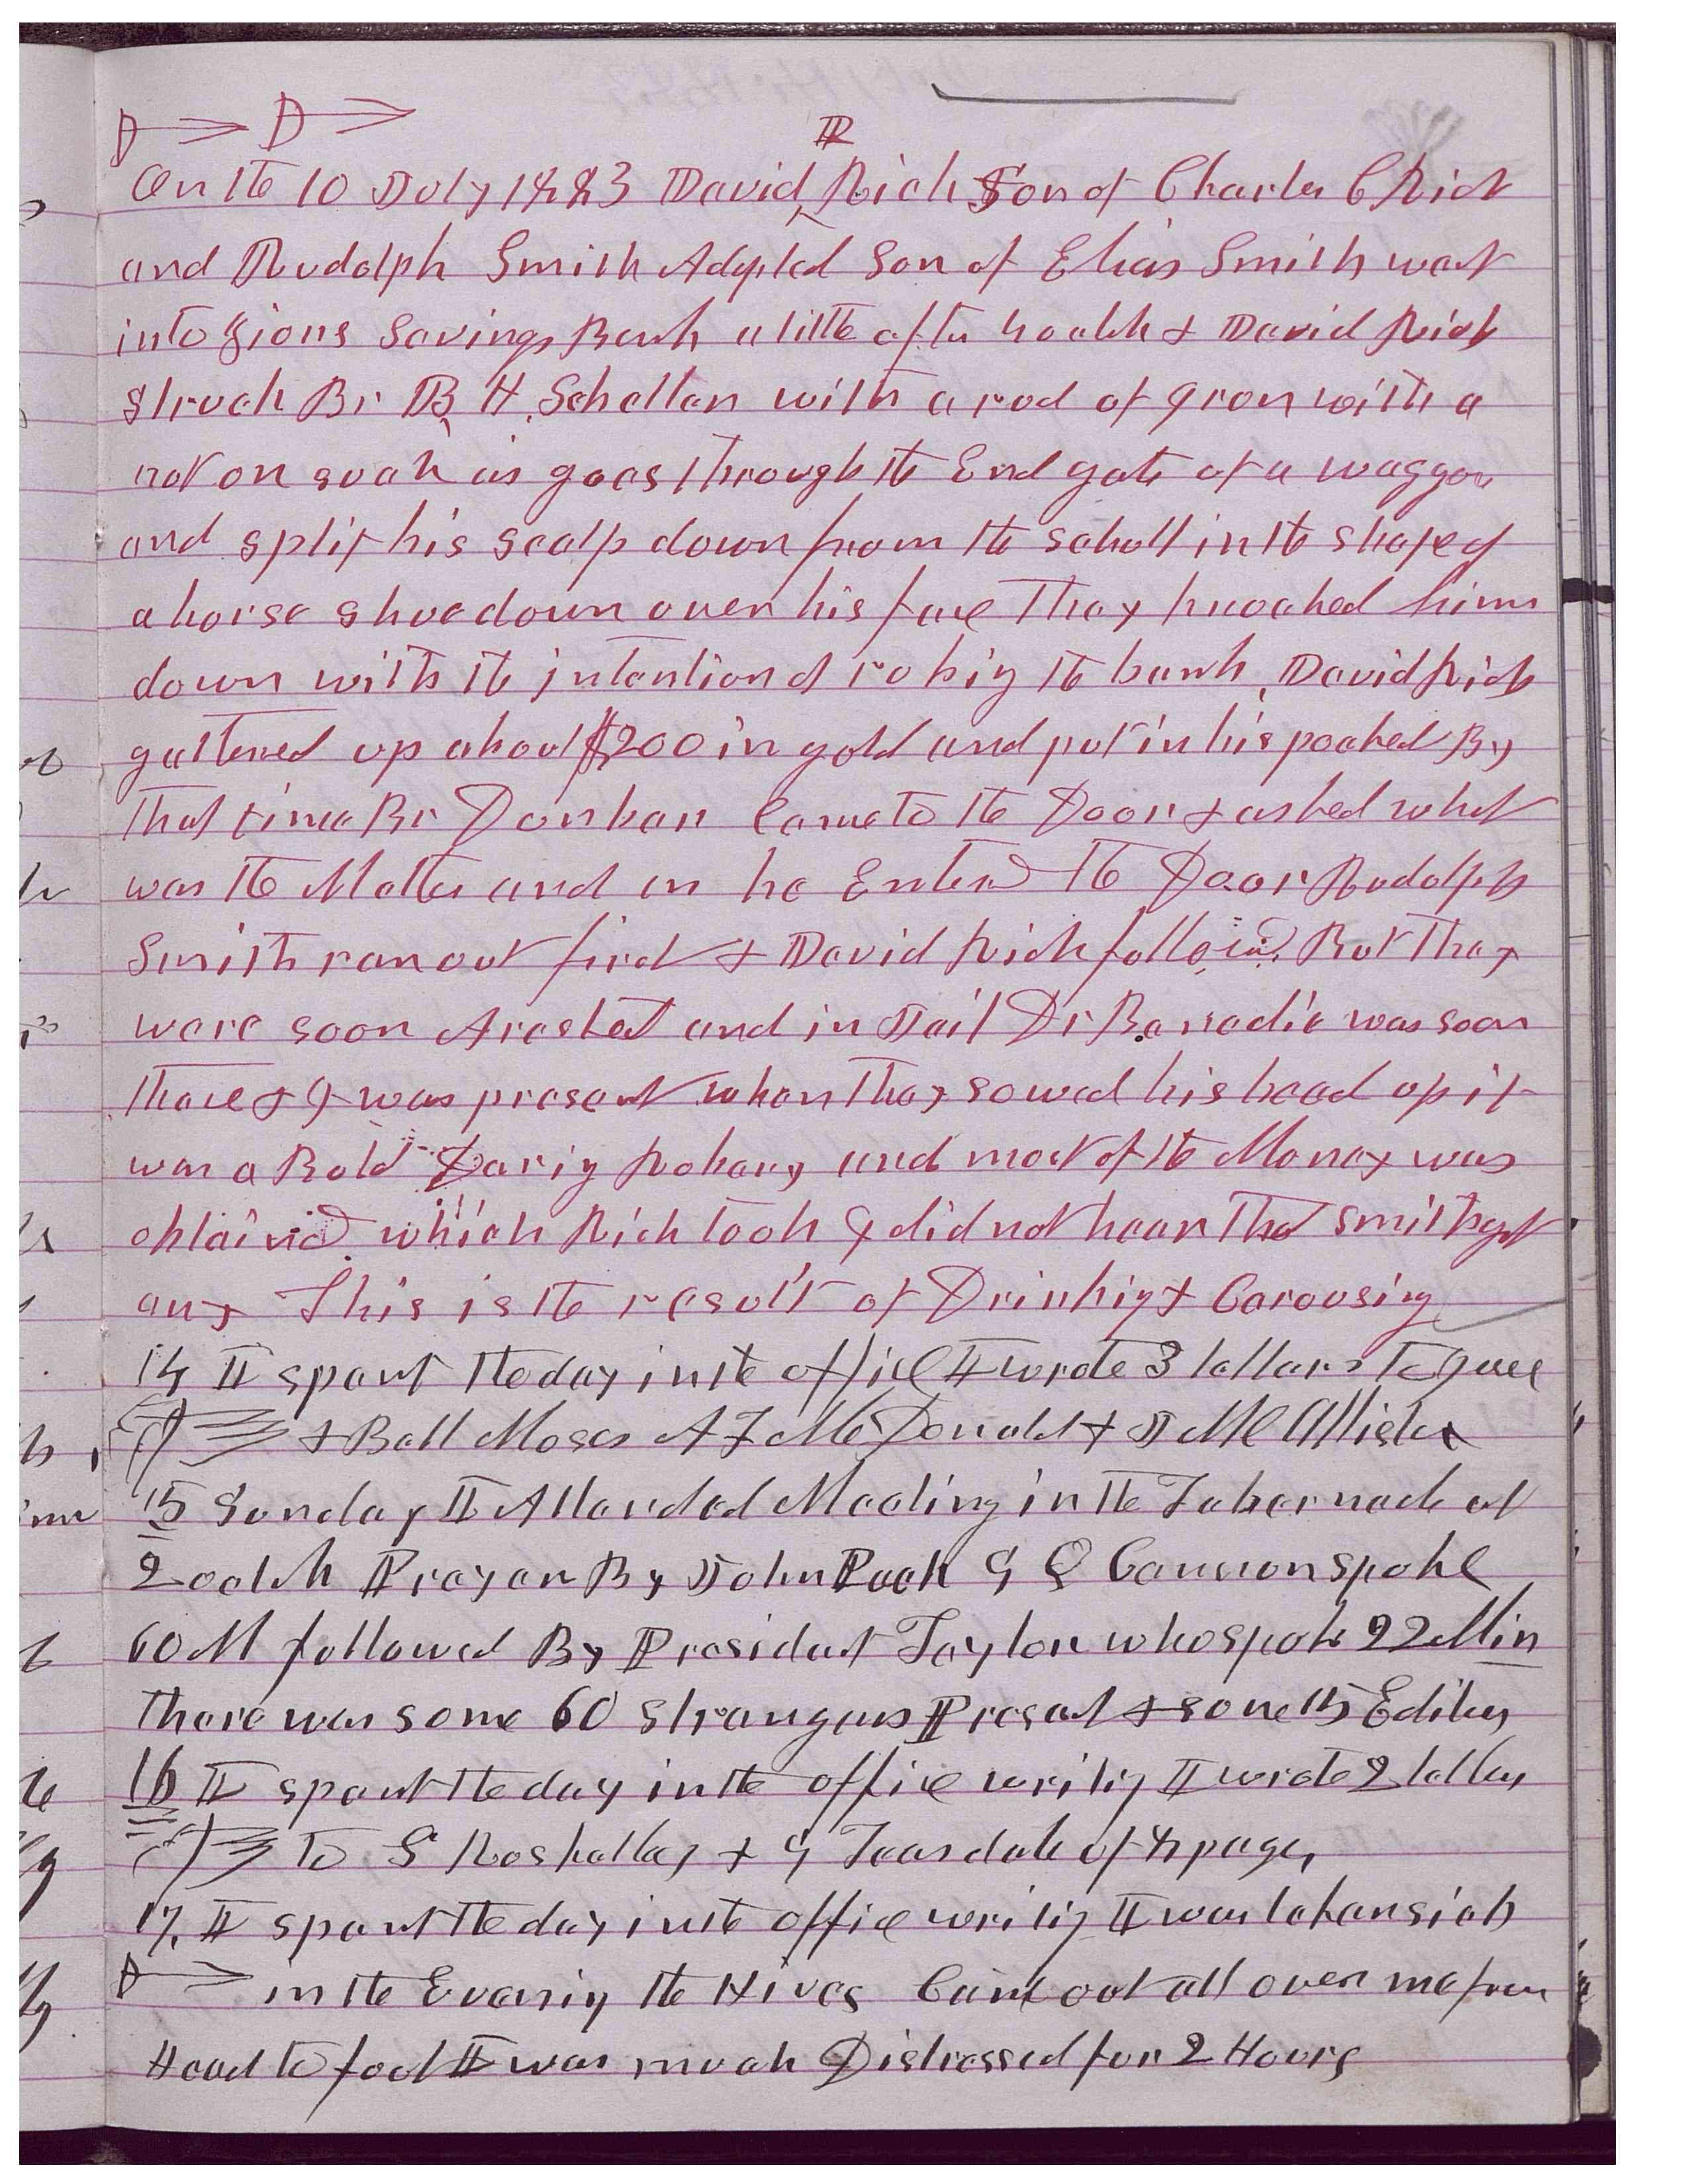 P
On the 10 July 1883 David ^ Rich Son of Charles C Rich
and Rudolph Smith Adopted Son of Elias Smith went
into Zions Savings Bank a little after 4 oclok & David Rich
Struck Br B H Schettler with a rod of Iron with a
nut on such as goes through the End gate of a waggon
and split his scalp down from the scholl in the shape of
a horse shoe down over his face They knocked him
down with the intention of robing the bank, David Rich
gathered up about $200 in gold and put in his pocket By
that time Br Donkan Came to the Door & asked what
was the Matter and as he Entered the Door Rudolph
Smith ran out first & David Rich followed. But they
were soon Arested and in Jail Dr Benedic was soon
there & I was present when they sowed his head up it
was a Bold Daring Robery and most of the Money was
obtained which Rich took I did not hear that Smith got
any This is the result of Drinking & Carousing
14 I spent the day in the office I wrote 3 letters to
& Bell Moses A F McDonald & J D McAllister
15 Sunday I Attended Meeting in the Tabernacle at
2 oclok Prayer By John Pack G Q Cannon spoke
60 M followed By President Taylor who spoke 22 Min
There was some 60 strangers Present & some 15 Editors
16 I spent the day in the office writing I wrote 2 letters
To S Roskelley & G Teasdale of 4 pages
17, I spent the day in the office writing I was taken sick
in the Evening the Hives Came out all over me from
Head to foot I was much Distressed for 2 Hours